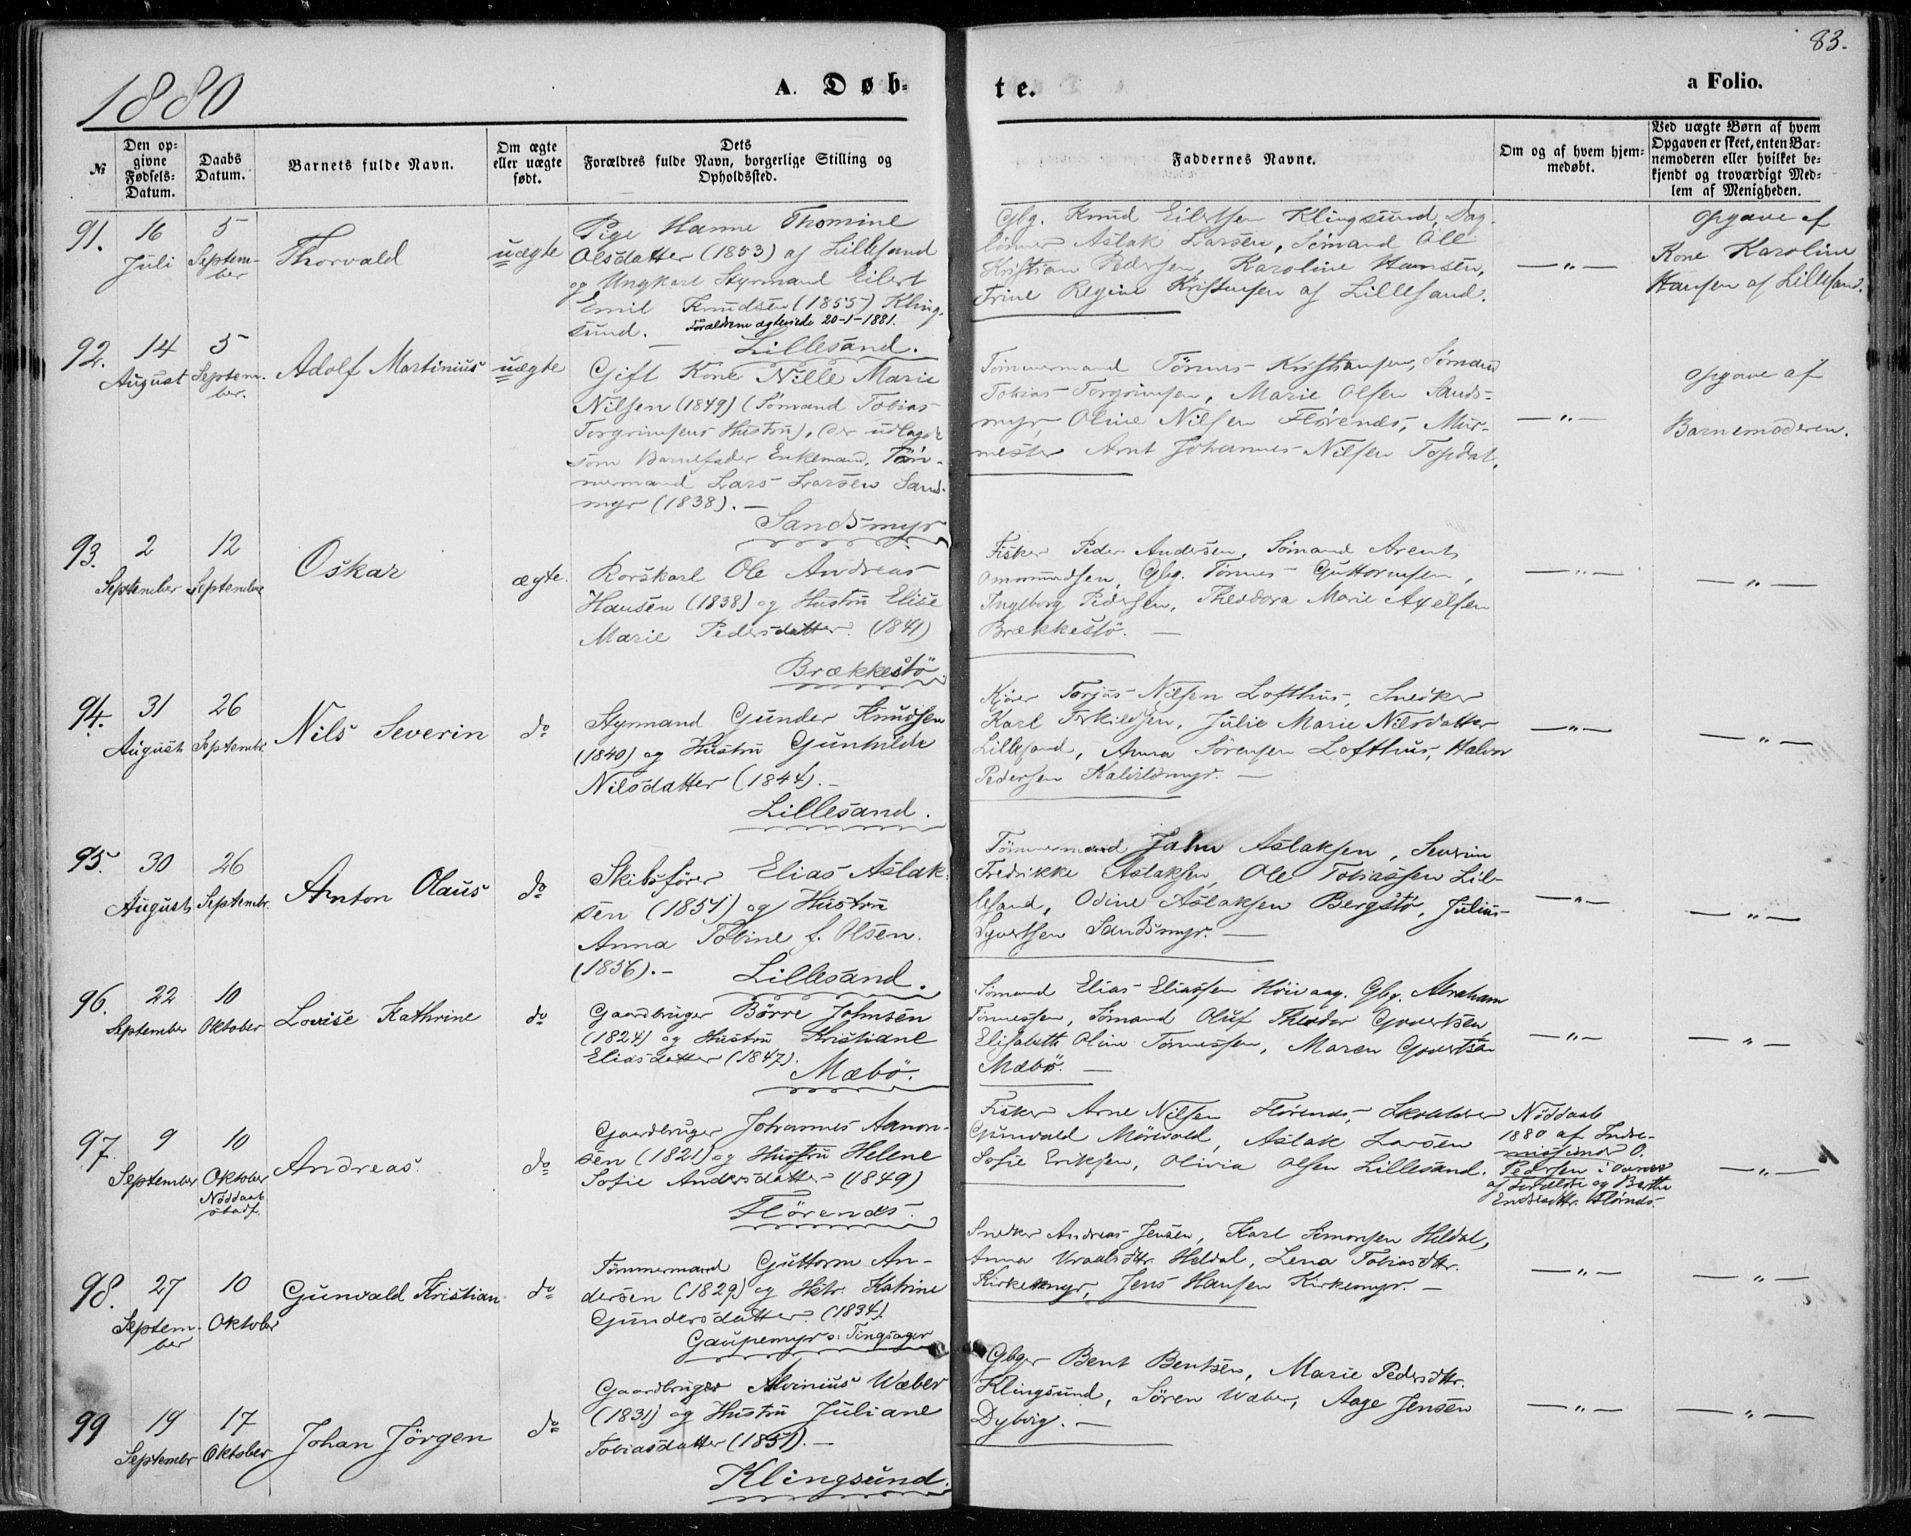 83.
1880
A. Døb-
te.
a Folio.
№
Den op-
givne
Fødsels-
Datum.
Daabs
Datum.
Barnets fulde Navn.
Om ægte
eller uægte
født.
Dets
Forældres fulde Navn, borgerlige Stilling og
Opholdssted.
Faddernes Navne.
Om og af hvem hjem-
medøbt.
Ved uægte Børn af hvem
Opgaven er skeet, enten Bar-
nemoderen eller hvilket be-
kjendt og troværdigt Med-
lem af Menigheden.
91.
16
Juli
5
Septem-
ber
Thorvald
uægte
Pige Hanne Thomine
Olsdatter (1853) af Lillesand
og Ungkarl Styrmand Eilert
Emil Knudsen (1855) Kling-
sund. Forældrene ægteviede 20-1-1881.
Lillesand.
Gbg. Knud Eilertsen Klingsund, Dag-
lönner Aslak Larsen, Sömand Ole
Kristian Pedersen, Karoline Hansen,
Trine Regine Kristensen af Lillesand.
—〃—
Opgave af
Kone Karoline
Hansen af Lillesand.
92.
14
August
5
Septem-
ber.
Adolf Martinius
uægte
Gift Kone Nille Marie
Nilsen (1849) (Sömand Tobias
Torgrimsens Hustru), der udlagde
som Barnefader Enkemand, Töm-
mermand Lars Larsen Sands-
myr (1838). —
Sandsmyr
Tömmermand Tönnes Kristiansen, Sömand
Tobias Torgrimsen, Marie Olsen Sands-
myr Oline Nilsen Flörenes, Mur-
mester Arnt Johannes Nilsen Topdal.
—〃—
Opgave af
Barnemoderen.
93.
2
September
12
September
Oskar
ægte.
Korskarl Ole Andreas
Hansen (1838) og Hustru Elise
Marie Pedersdatter. (1841)
Brækkestö
Fisker Peder Andersen, Sömand Arent
Omomundsen, Gbg. Tönnes Guttormsen,
Ingeborg Pedersen, Theodora Marie Axelsen
Brækkestö. —
—〃—
—〃—
94.
31
August
26
Septembr.
Nils Severin
do
Styrmand Gunder Knudsen
(1840) og Hustru Gunhilde
Nilsdatter (1844). —
Lillesand.
Torjus Nilsen Lofthus, Snedker
Karl Terkildsen, Julie Marie Nilsdatter
Lillesand, Anna Sörensen Lofthus, Halvor
Pedersen Kalvildmyr. —
—〃—
—〃—
95.
30
August
26
Septembr.
Anton Olaus
do
Skibsförer Elias Aslak-
sen (1851) og Hustru
Anna Tobine f. Olsen.
(1856). — Lillesand.
Tömmermand John Aslaksen, Severin
Fredrikke Aslaksen, Ole Tobiassen Lil-
lesand, Odine Aslaksen Bergstö, Julius
Syvertsen Sandsmyr. —
—〃—
—〃—
96.
22
September
10
Oktober
Lovise Kathrine
do
Gaardbruger Börre Johnsen
(1824) og Hustru Kristiane
Eliasdatter (1847).
Mæbö.
Sömand Elias Eliassen Höivaag. Gbg. Abraham
Tönnessen, Sömand Oluf Theodor Govertsen
Elisabeth Oline Tönnessen, Maren Govertsen
Mæbö. —
—〃—
—〃—
97.
9
September
10
Oktober
Nöddaab
stadf.
Andreas.
do
Gaardbruger Johannes Aanon-
sen (1821) og Hustru Helene
Sofie Andersdatter (1849)
Flörenes.
Fisker Arne Nilsen Flörenes,
Gunvald Möretvold, Aslak Larsen
Sofie Eriksen, Olivia Olsen Lillesand.
Nöddaab
1880 af Indre-
missionær O.
Pedersen i Overvær
af Forældre og Berthe
Endresdttr. Flörnds.
—〃—
98.
27
Septem-
ber
10
Oktober
Gunvald Kristian
do
Tömmermand Guttorm An-
dersen (1829) og Hstr. Katrine
Gundersdatter. (1834).
Gaupemyr o: Tingsager
Snedker Andreas Jensen, Karl Simonsen Heldal,
Anna Vraalsdtr. Heldal, Lena Tobiasdtr.
Kirkemyr, Jens Hansen Kirkemyr. —
—〃—
—〃—
99
19
Septembr
17
Oktober
Johan Jörgen
do
Gaardbruger Alvinius Wæber
(1831) og Hustru Juliane
Tobiasdatter (1851). —
Klingsund.
Gbgr Bent Bentsen, Marie Pedersdtr.
Klingsund, Sören Wæber, Aage Jensen
Dybvig. —
—〃—
—〃—